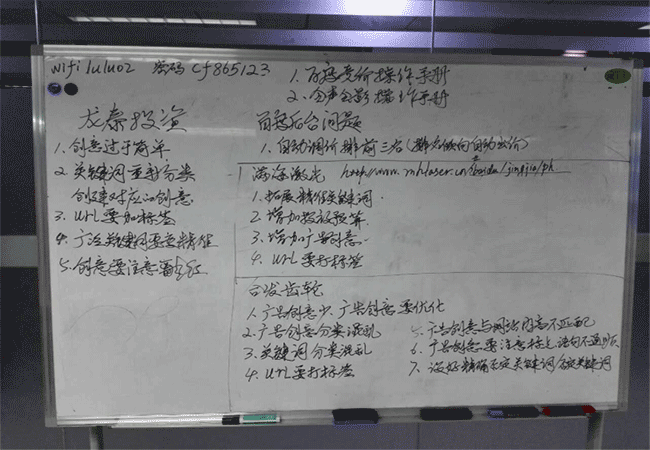 wifi luluo2 密码 cf865123
1. 百度竞价操作手册
2. 会声会影操作手册
龙泰投资
1. 创意过于简单
2. 关键词重新分类
创建对应的创意
3. URL要加标签
4. 广泛关键词要精准
5. 创意要注意
百度后台问题
1. 自动调价排前三名(排名倾向自动出价)
海激光 http://www.mhlaser.cn/baidu/jingjia/ph
1. 拓展精准关键词
2. 增加投放预算
3. 增加广告创意
4. URL要打标签
合发齿轮
1. 广告创意少、广告创意要优化
2. 广告创意分类混乱
3. 关键词分类混乱
4. URL要打标签
5. 广告创意与网站内容不匹配
6. 广告创意要注意标点 语句不通顺
7. 设好精确否定关键词/否定关键词